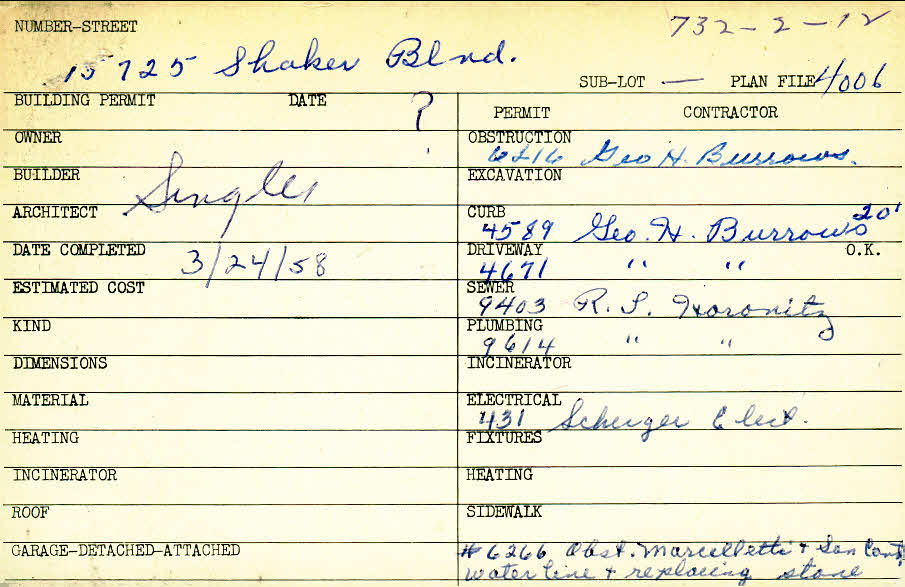 NUMBER-STREET 732-2-12
15725 Shaker Blvd.
SUB-LOT — PLAN FILE 4006
BUILDING PERMIT DATE ?
PERMIT CONTRACTOR
OWNER
OBSTRUCTION
6216 Geo H. Burrows.
BUILDER
EXCAVATION
ARCHITECT
CURB 20'
4589 Geo. H. Burrows
DATE COMPLETED 3/24/58
DRIVEWAY O.K.
4671 " "
ESTIMATED COST
SEWER
9403 R. S. Horovitz
KIND
PLUMBING
9614 " "
DIMENSIONS
INCINERATOR
MATERIAL
ELECTRICAL
431 Elect.
HEATING
FIXTURES
INCINERATOR
HEATING
ROOF
SIDEWALK
GARAGE-DETACHED-ATTACHED
#6266 Obst. Marcelletti + Son Cont.
water line + replacing stone